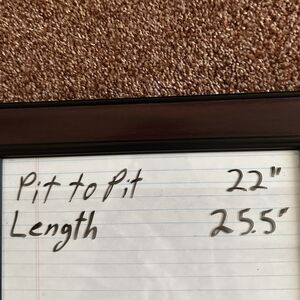 Pit to Pit 22"
Length 25.5"